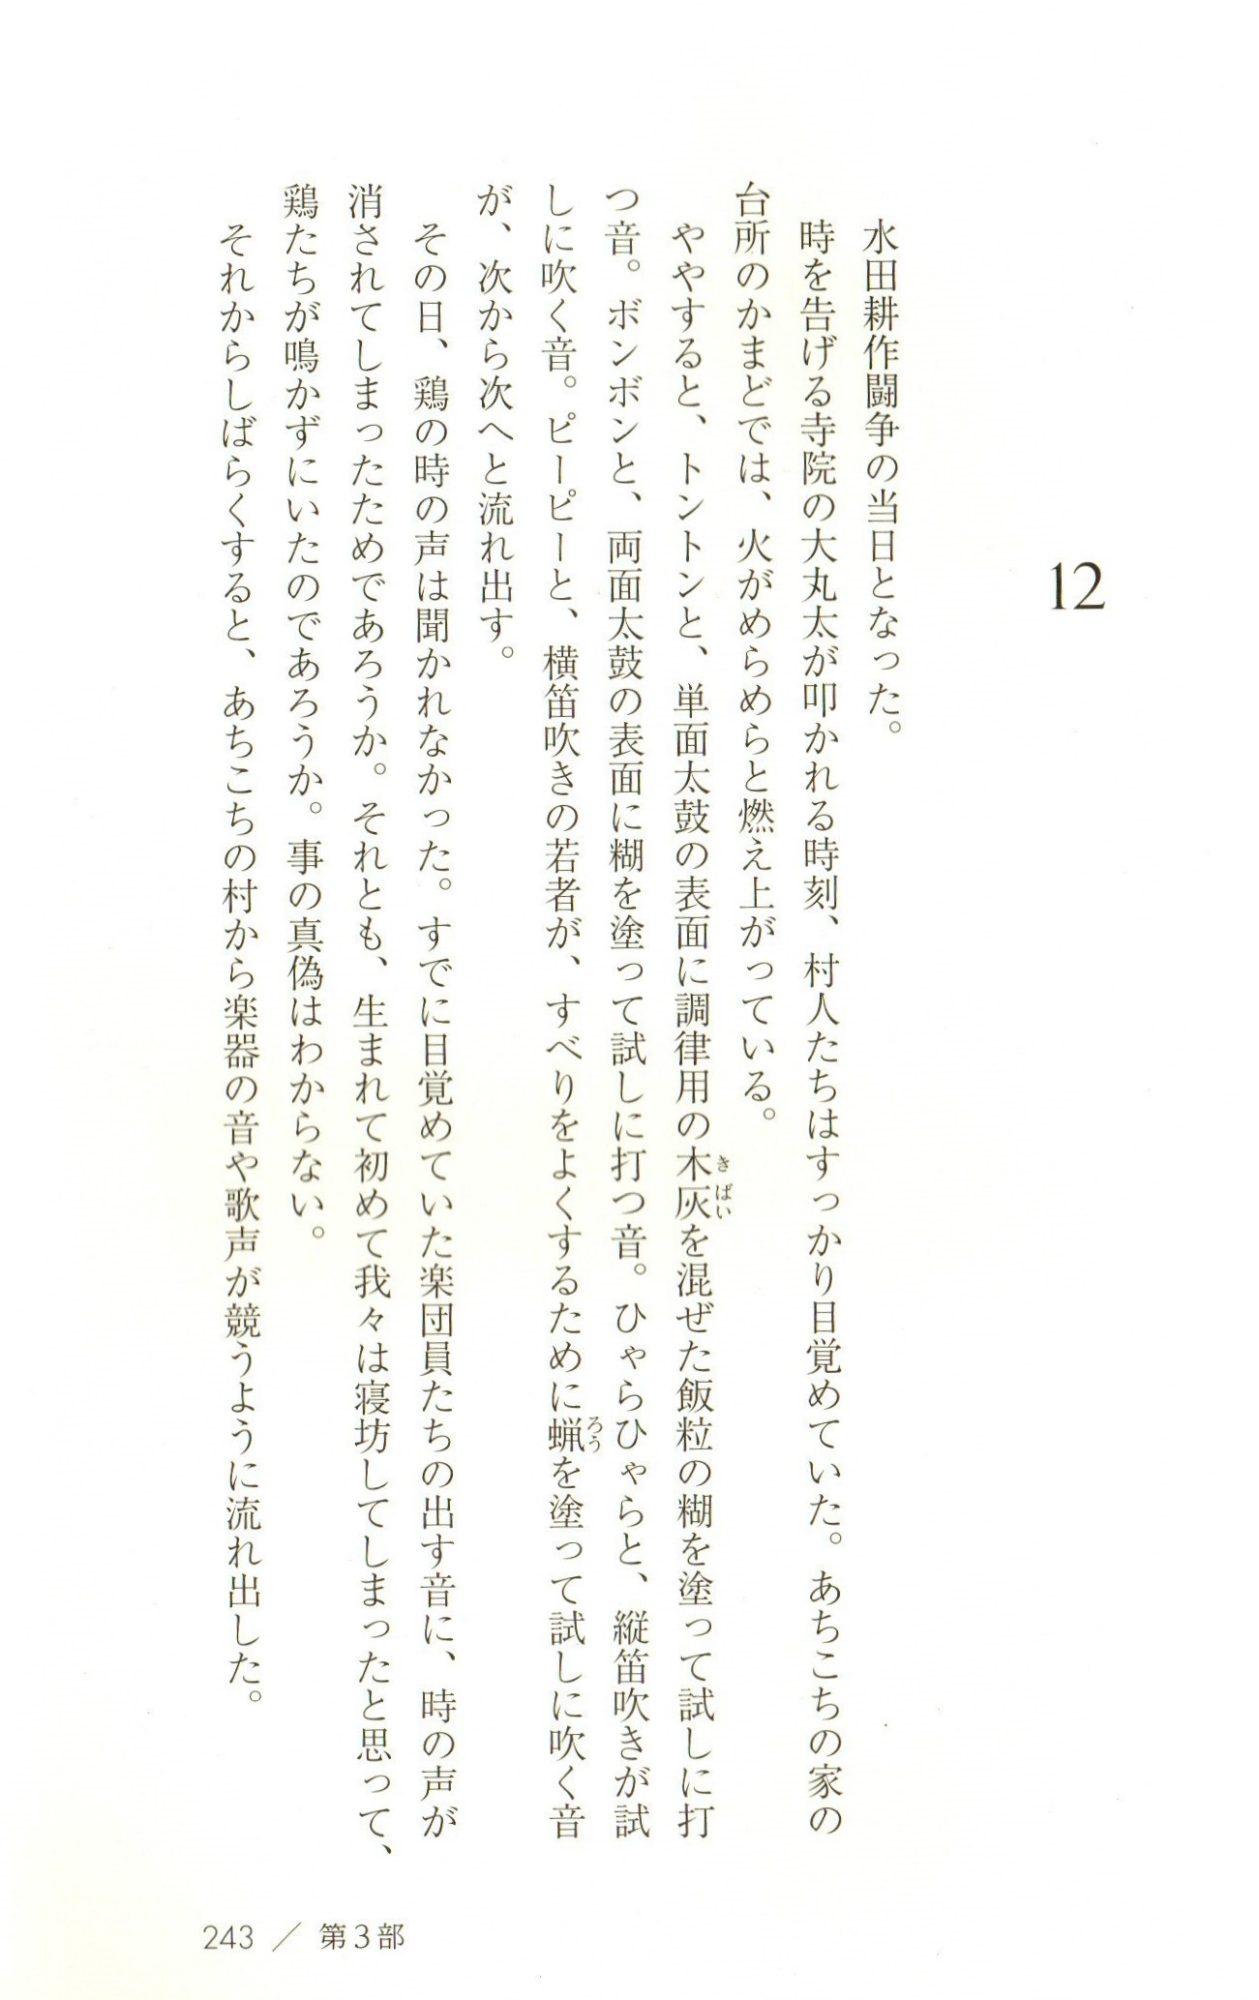 12
水田耕作闘争の当日となった。
時を告げる寺院の大丸太が叩かれる時刻、村人たちはすっかり目覚めていた。あちこちの家の
台所のかまどでは、火がめらめらと燃え上がっている。
ややすると、トントンと、単面太鼓の表面に調律用の木灰を混ぜた飯粒の糊を塗って試しに打
きばい
つ音。ボンボンと、両面太鼓の表面に糊を塗って試しに打つ音。ひゃらひゃらと、縦笛吹きが試
しに吹く音。ピーピーと、横笛吹きの若者が、すべりをよくするために蝋を塗って試しに吹く音
ろう
が、次から次へと流れ出す。
その日、鶏の時の声は聞かれなかった。すでに目覚めていた楽団員たちの出す音に、時の声が
消されてしまったためであろうか。それとも、生まれて初めて我々は寝坊してしまったと思って、
鶏たちが鳴かずにいたのであろうか。事の真偽はわからない。
それからしばらくすると、あちこちの村から楽器の音や歌声が競うように流れ出した。
243 / 第3部